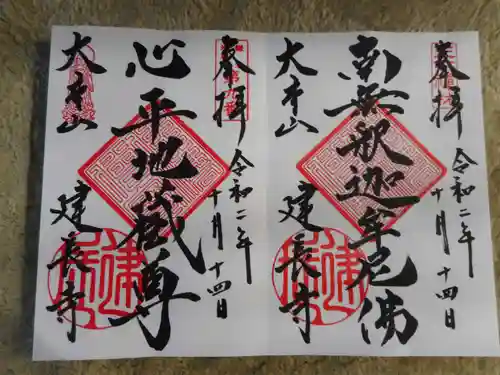 奉拝
令和二年
十月十四日
南無釈迦牟尼佛
大本山
建長寺
奉拝
令和二年
十月十四日
心平地蔵尊
大本山
建長寺